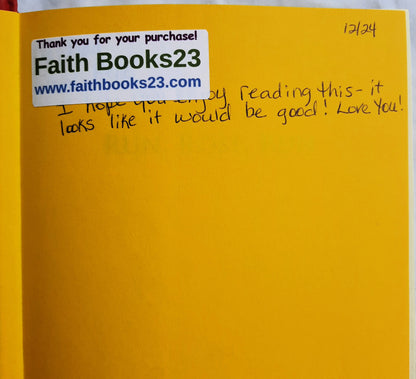 12/24
Thank you for your purchase!
Faith Books23
www.faithbooks23.com
I hope you enjoy reading this - it
looks like it would be good! Love You!